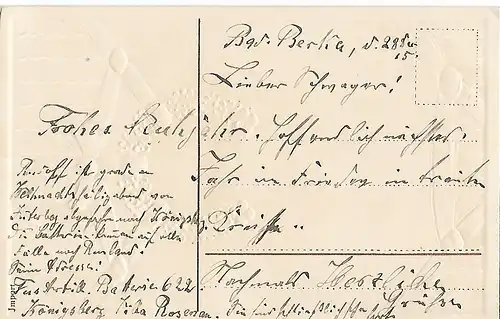 Bad. Berka, d. 28 Dez.
15.
Lieber Schwager!
Frohes Neujahr. Hoffendlich nächstes
Jahr in Frieden in trauten
Kreise..
Nochmals Herzliche
Grüßen
Rudolf ist grade am
Weihnachtsheiligabend von
Jüterbog abgefahren nach Königsbg.
die Batterie kommt auf alle
Fälle nach Russland.
Seine Adresse:
Fussartill. Batterie 622
Königsberg
Import